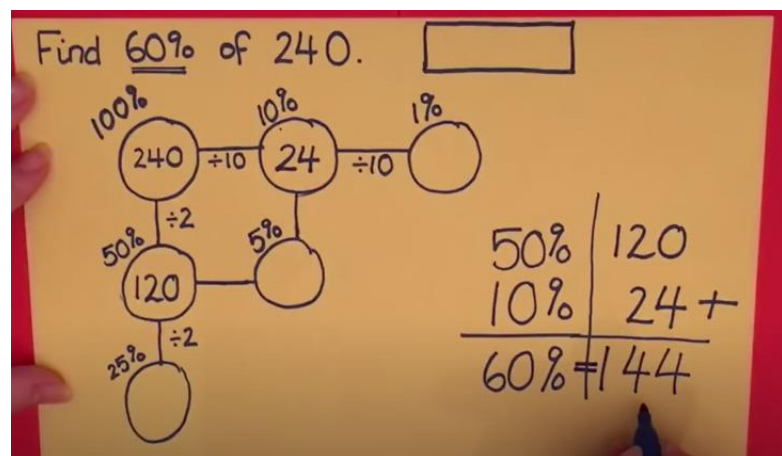 Find 60% of 240.
100% 10% 1%
240 ÷10 24 ÷10
÷2
50% 5%
120
÷2
25%
50% 120
10% 24 +
60% = 144